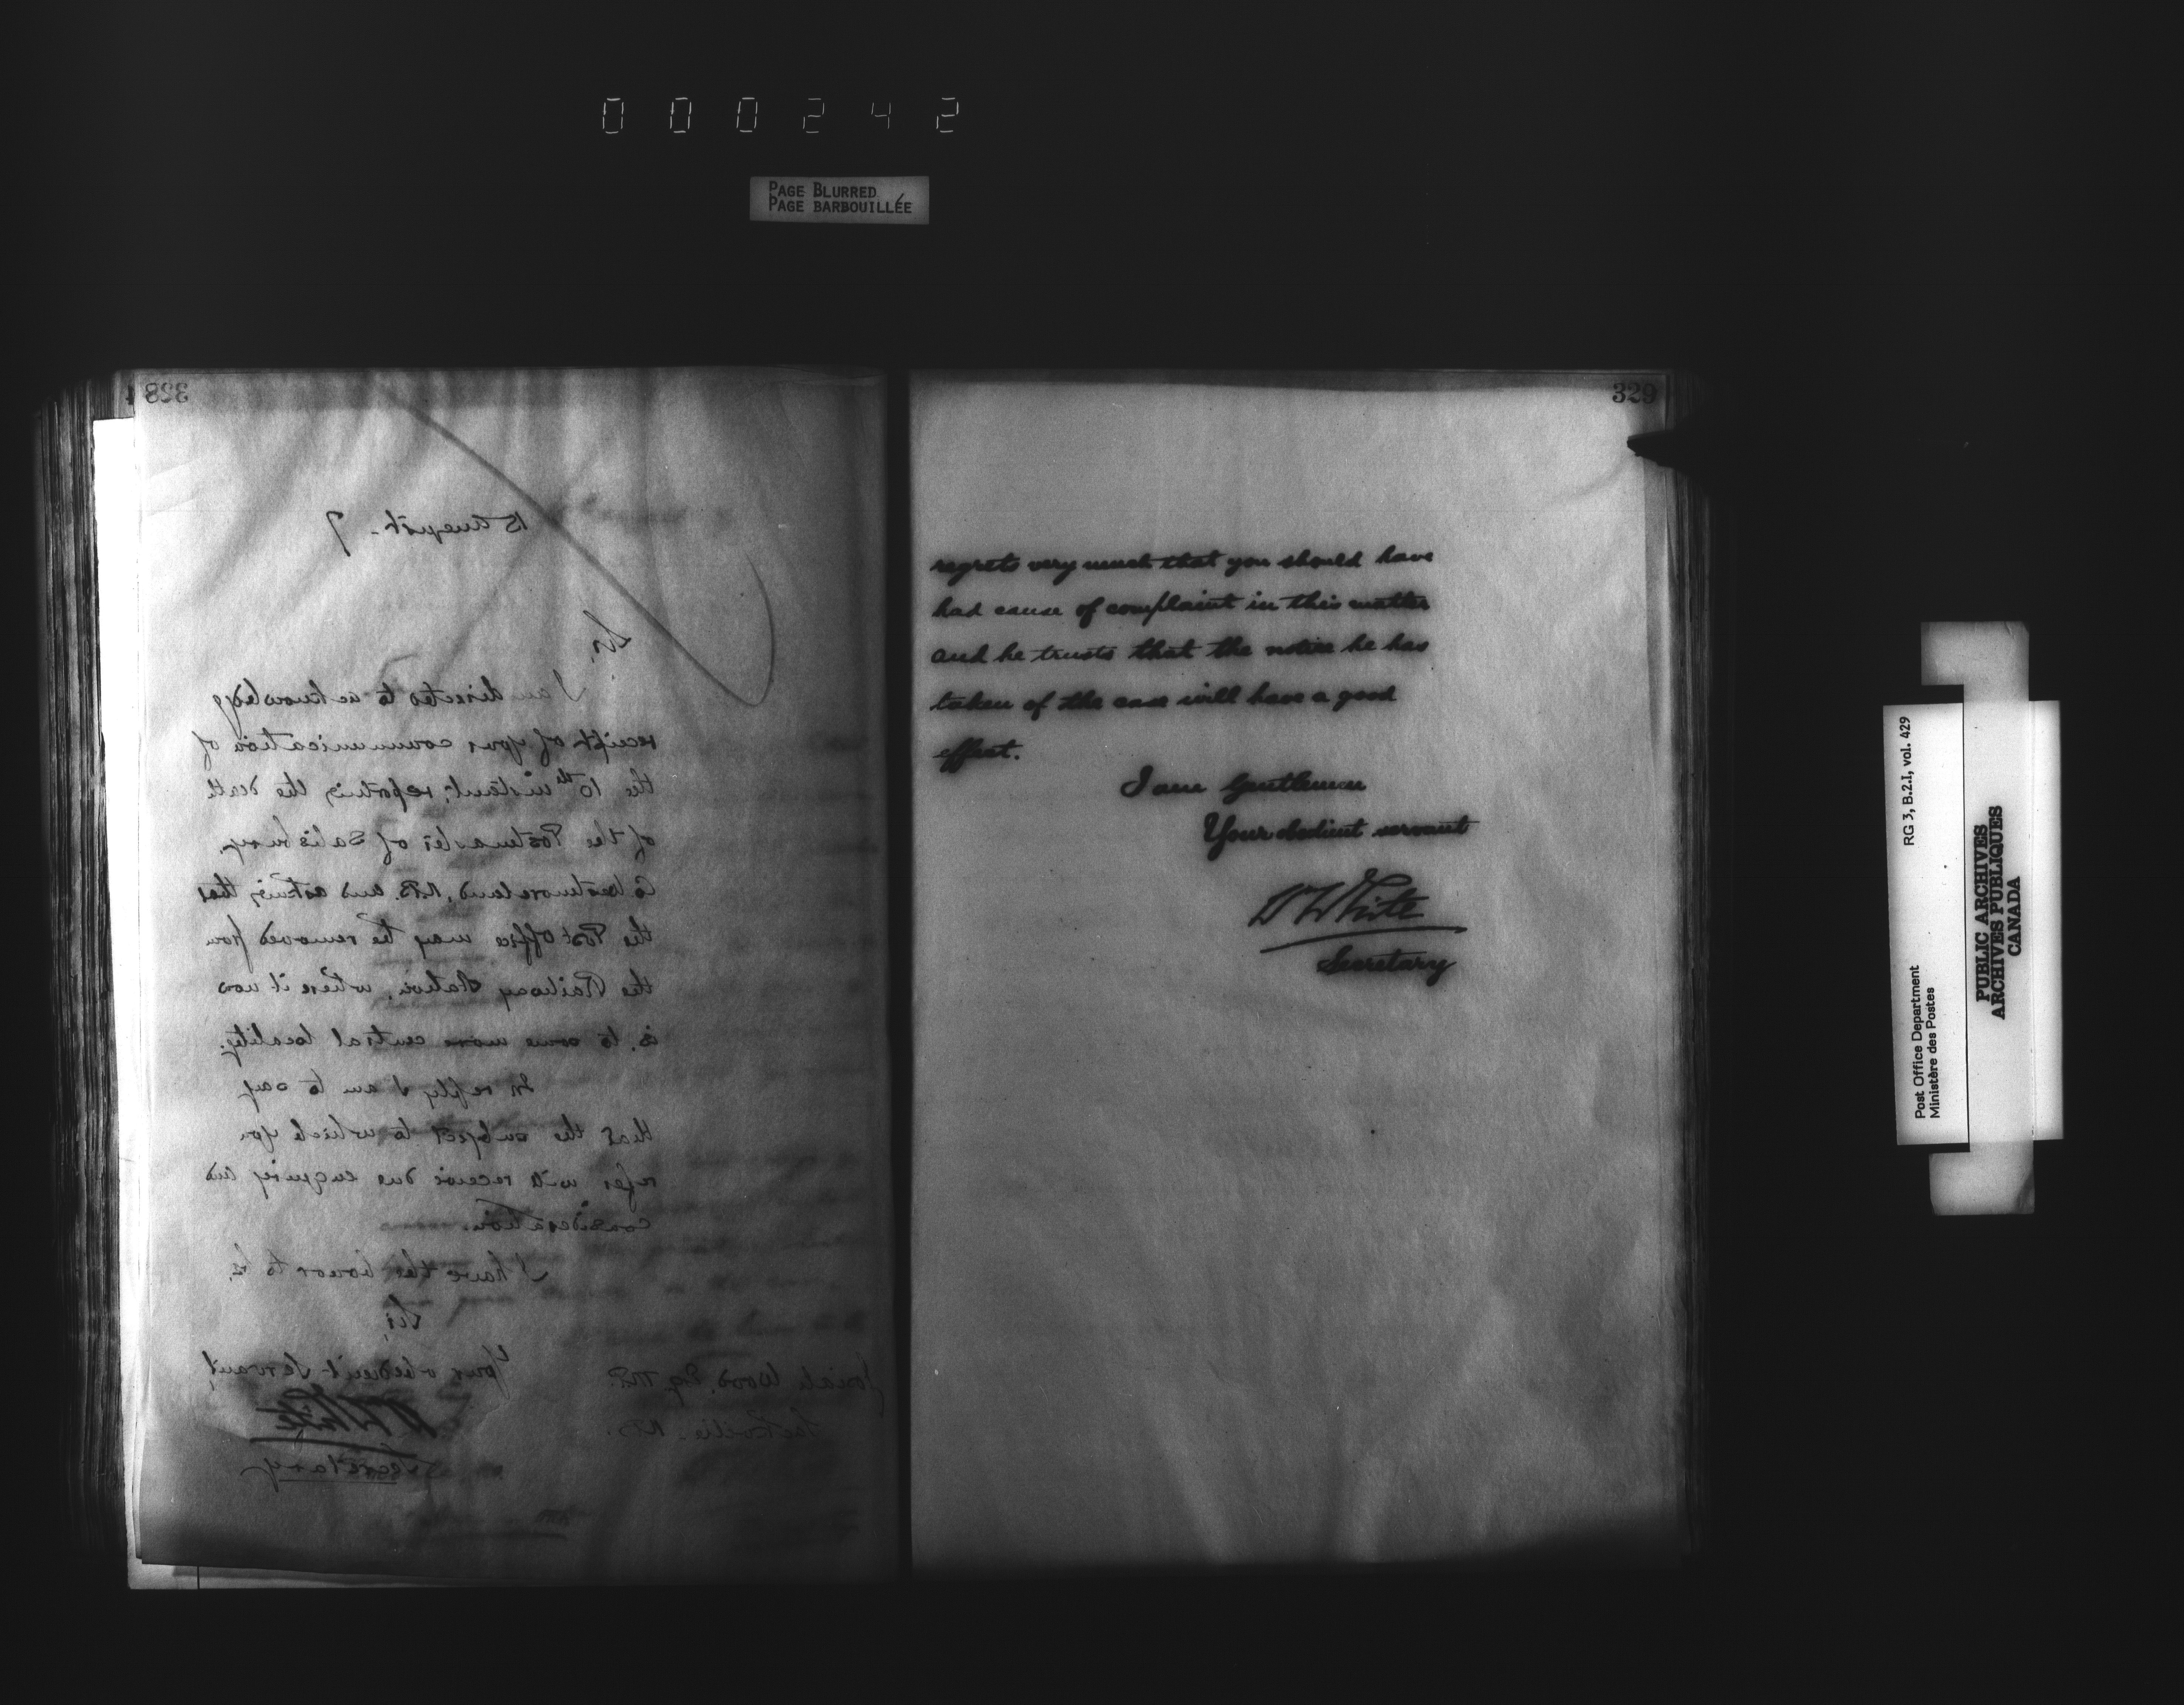 000242
PAGE BLURRED
PAGE BARBOUILLÉE
328
15 August - 7
Sir,
I am directed to acknowledge
receipt of your communication of
the 10th instant, reporting the death
of the Postmaster of Salisbury,
Co Westmoreland, N.B. and asking that
the Post Office may be removed from
the Railway Station, where it now
is, to some more central locality.
In reply I am to say
that the subject to which you
refer will receive due enquiry and
consideration.
I have the honor to be,
Sir,
Your obedient Servant
W White
Secretary
Josiah Wood, Esq. M.P.
Sackville, N.B.
329
regrets very much that you should have
had cause of complaint in this matter
and he trusts that the notice he has
taken of the case will have a good
effect.
I am Gentlemen
Your obedient servant
W White
Secretary
Post Office Department
Ministère des Postes
RG 3, B.2.I, vol. 429
PUBLIC ARCHIVES
ARCHIVES PUBLIQUES
CANADA